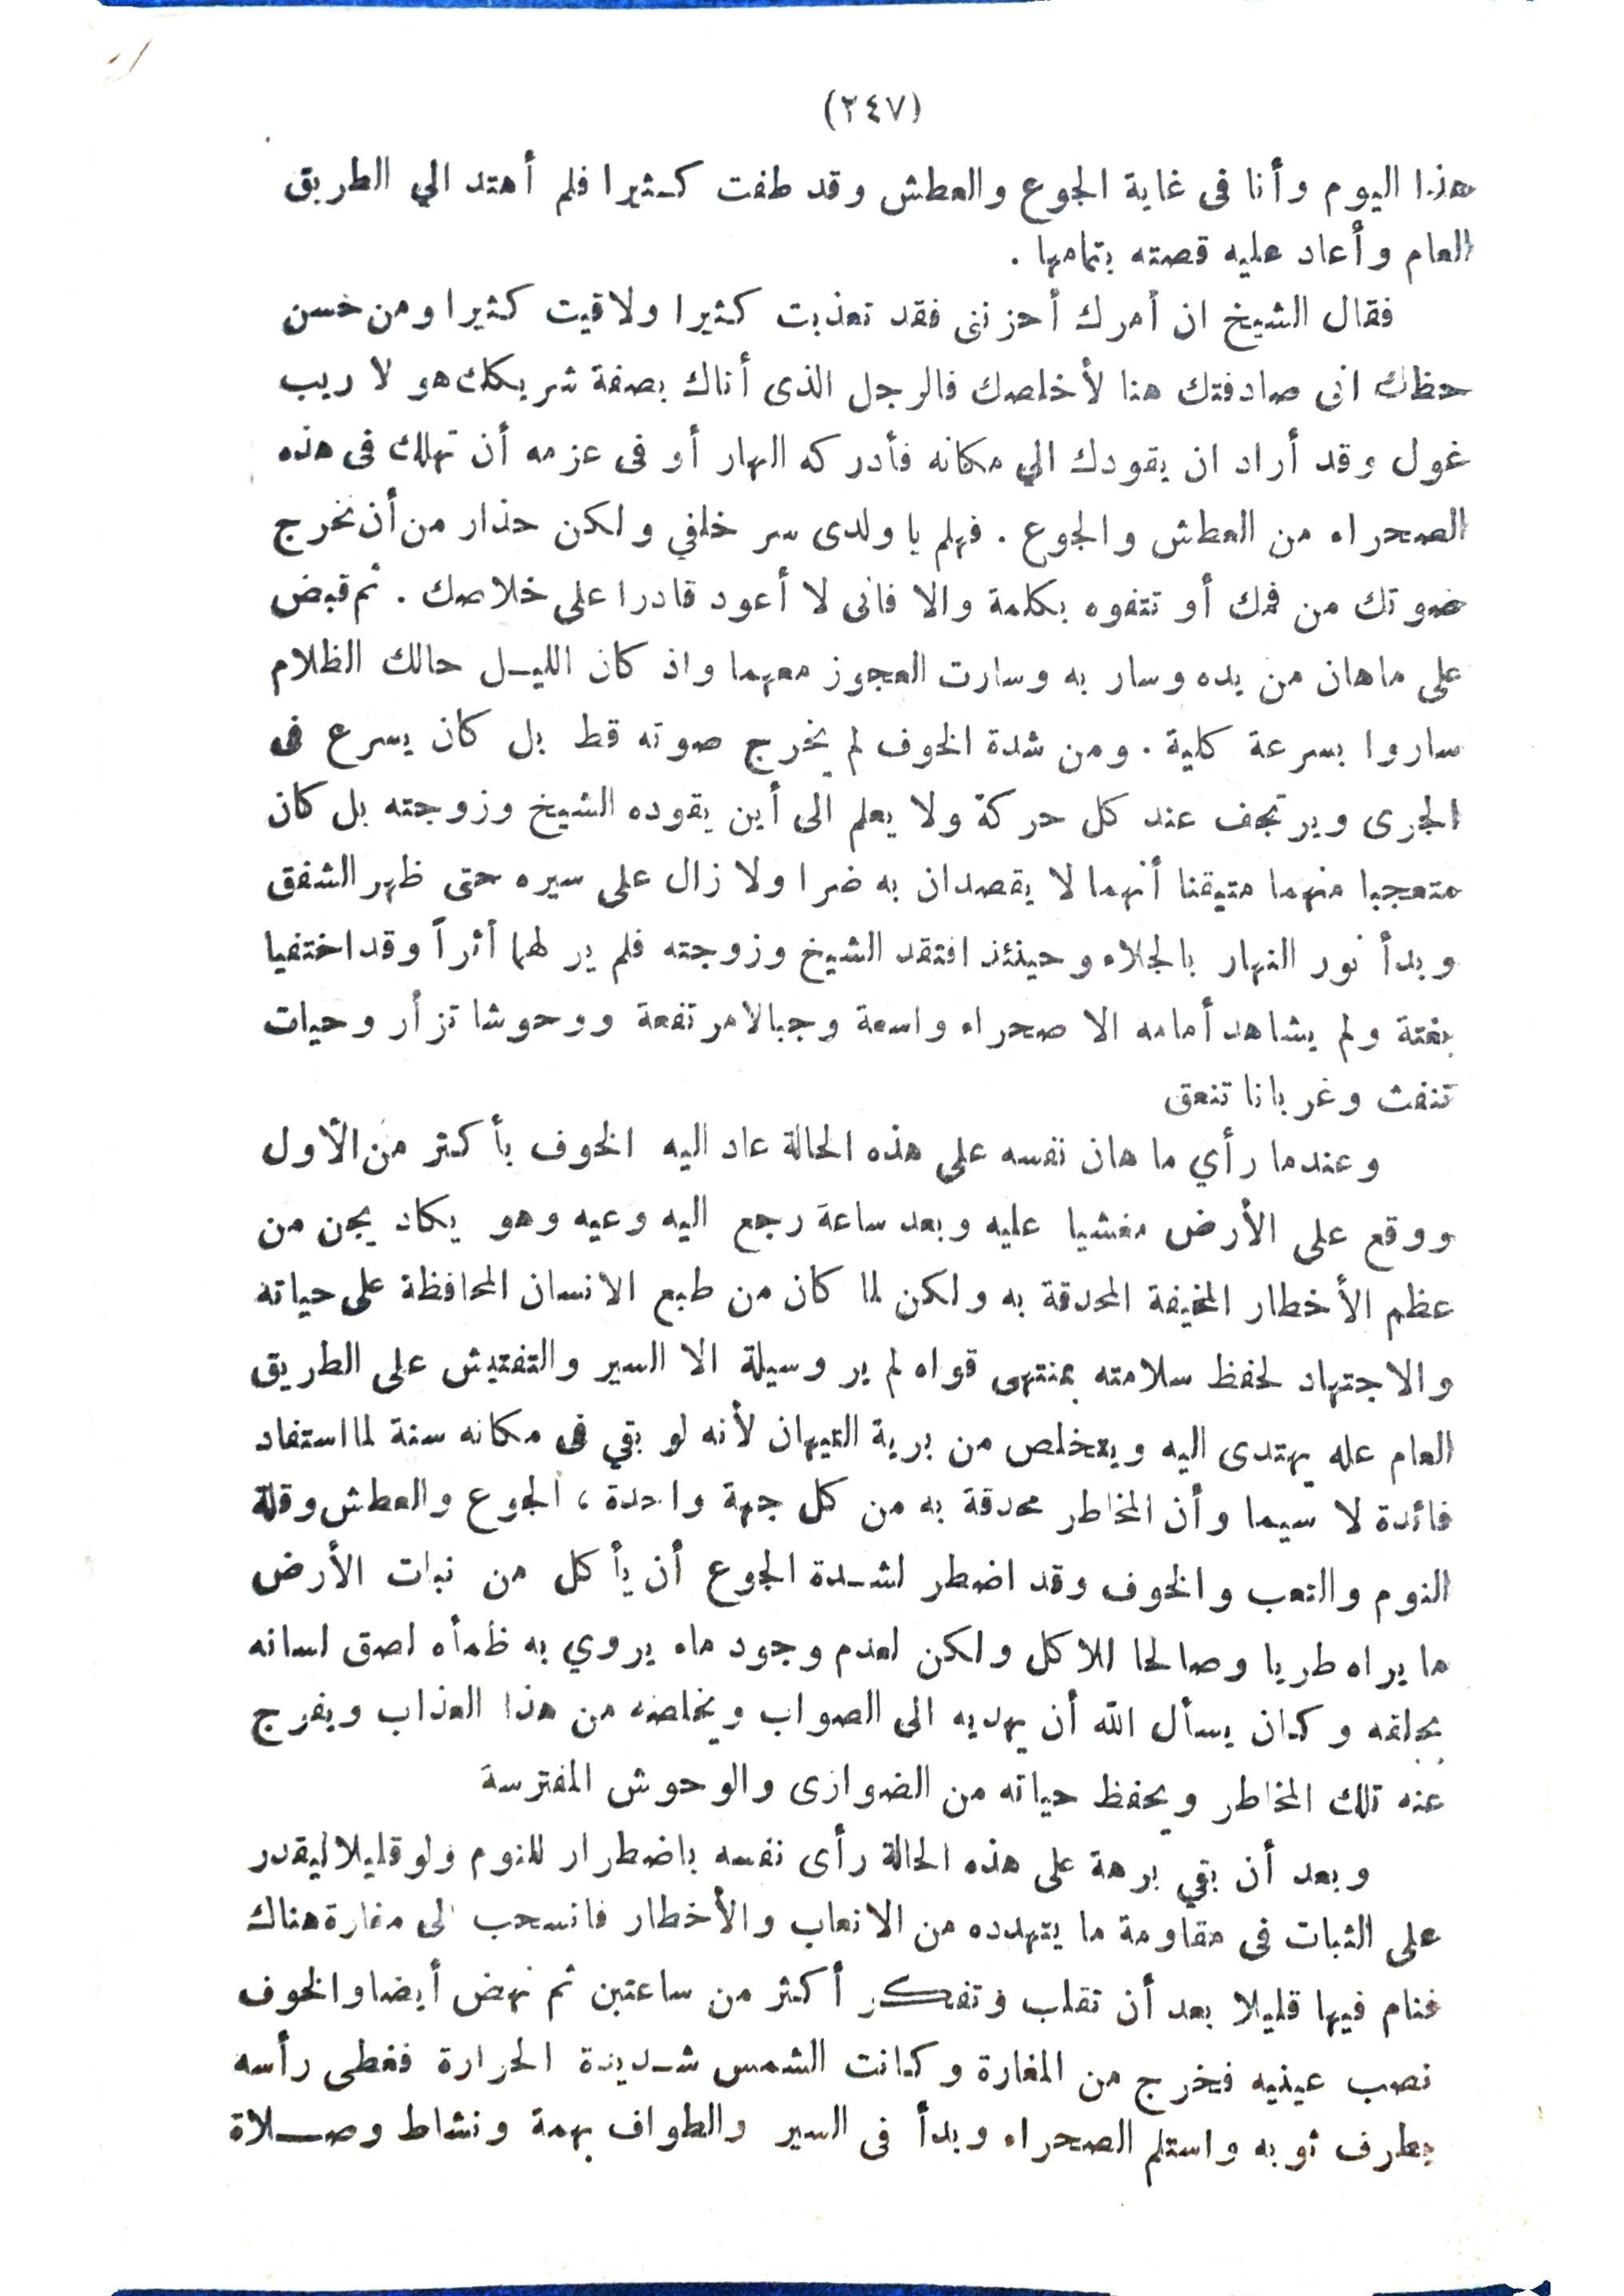 (٢٤٧)
هذا اليوم وأنا فى غاية الجوع والعطش وقد طفت كثيرا فلم أهتد الي الطريق
العام وأعاد عليه قصته بتمامها .
فقال الشيخ ان أمرك أحزننى فقد تعذبت كثيرا ولاقيت كثيرا ومن حسن
حظك انى صادفتك هنا لأخلصك فالرجل الذى أتاك بصفة شريكك هو لا ريب
غول وقد أراد ان يقودك الي مكانه فأدركه النهار أو فى عزمه أن تهلك فى هذه
الصحراء من العطش والجوع . فهلم يا ولدى سر خلفي ولكن حذار من أن تخرج
صوتك من فمك أو تتفوه بكلمة والا فانى لا أعود قادرا على خلاصك . ثم قبض
على ماهان من يده وسار به وسارت العجوز معهما واذ كان الليل حالك الظلام
ساروا بسرعة كلية . ومن شدة الخوف لم يخرج صوته قط بل كان يسرع فى
الجرى ويرتجف عند كل حركة ولا يعلم الى أين يقوده الشيخ وزوجته بل كان
متعجبا منهما متيقنا أنهما لا يقصدان به ضرا ولا زال على سيره حتى ظهر الشفق
وبدأ نور النهار بالجلاء وحينئذ افتقد الشيخ وزوجته فلم ير لهما أثراً وقد اختفيا
بغتة ولم يشاهد أمامه الا صحراء واسعة وجبالا مرتفعة ووحوشا تزأر وحيات
تنفث وغربانا تنعق
وعندما رأي ماهان نفسه على هذه الحالة عاد اليه الخوف بأكثر من الأول
ووقع على الأرض مغشيا عليه وبعد ساعة رجع اليه وعيه وهو يكاد يجن من
عظم الأخطار المخيفة المحدقة به ولكن لما كان من طبع الانسان المحافظة على حياته
والاجتهاد لحفظ سلامته بمنتهى قواه لم ير وسيلة الا السير والتفتيش على الطريق
العام عله يهتدى اليه ويتخلص من برية التيهان لأنه لو بقي فى مكانه سنة لما استفاد
فائدة لا سيما وأن المخاطر محدقة به من كل جهة واحدة ، الجوع والعطش وقلة
النوم والتعب والخوف وقد اضطر لشدة الجوع أن يأكل من نبات الأرض
ما يراه طريا وصالحا للاكل ولكن لعدم وجود ماء يروي به ظمأه لصق لسانه
بحلقه وكان يسأل الله أن يهديه الى الصواب ويخلصه من هذا العذاب ويفرج
عنه تلك المخاطر ويحفظ حياته من الضوارى والوحوش المفترسة
وبعد أن بقي برهة على هذه الحالة رأى نفسه باضطرار للنوم ولو قليلا ليقدر
على الثبات فى مقاومة ما يتهدده من الاتعاب والأخطار فانسحب الى مغارة هناك
فنام فيها قليلا بعد أن تقلب وتفكر أكثر من ساعتين ثم نهض أيضا والخوف
نصب عينيه فخرج من المغارة وكانت الشمس شديدة الحرارة فغطى رأسه
بطرف ثوبه واستلم الصحراء وبدأ فى السير والطواف بهمة ونشاط وصلاة